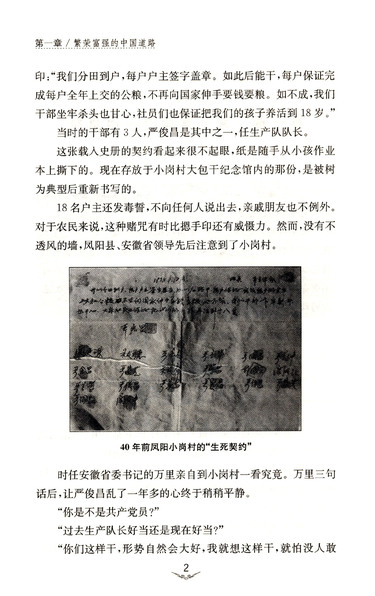 第一章 / 繁荣富强的中国道路
印：“我们分田到户，每户户主签字盖章。如此后能干，每户保证完
成每户全年上交的公粮，不再向国家伸手要钱要粮。如不成，我们
干部坐牢杀头也甘心，社员们也保证把我们的孩子养活到 18 岁。”
当时的干部有 3 人，严俊昌是其中之一，任生产队队长。
这张载入史册的契约看起来很不起眼，纸是随手从小孩作业
本上撕下的。现在存放于小岗村大包干纪念馆内的那份，是被树
为典型后重新书写的。
18 名户主还发毒誓，不向任何人说出去，亲戚朋友也不例外。
对于农民来说，这种赌咒有时比摁手印还有威慑力。然而，没有不
透风的墙，凤阳县、安徽省领导先后注意到了小岗村。
40 年前凤阳小岗村的“生死契约”
时任安徽省委书记的万里亲自到小岗村一看究竟。万里三句
话后，让严俊昌乱了一年多的心终于稍稍平静。
“你是不是共产党员？”
“过去生产队长好当还是现在好当？”
“你们这样干，形势自然会大好，我就想这样干，就怕没人敢
2